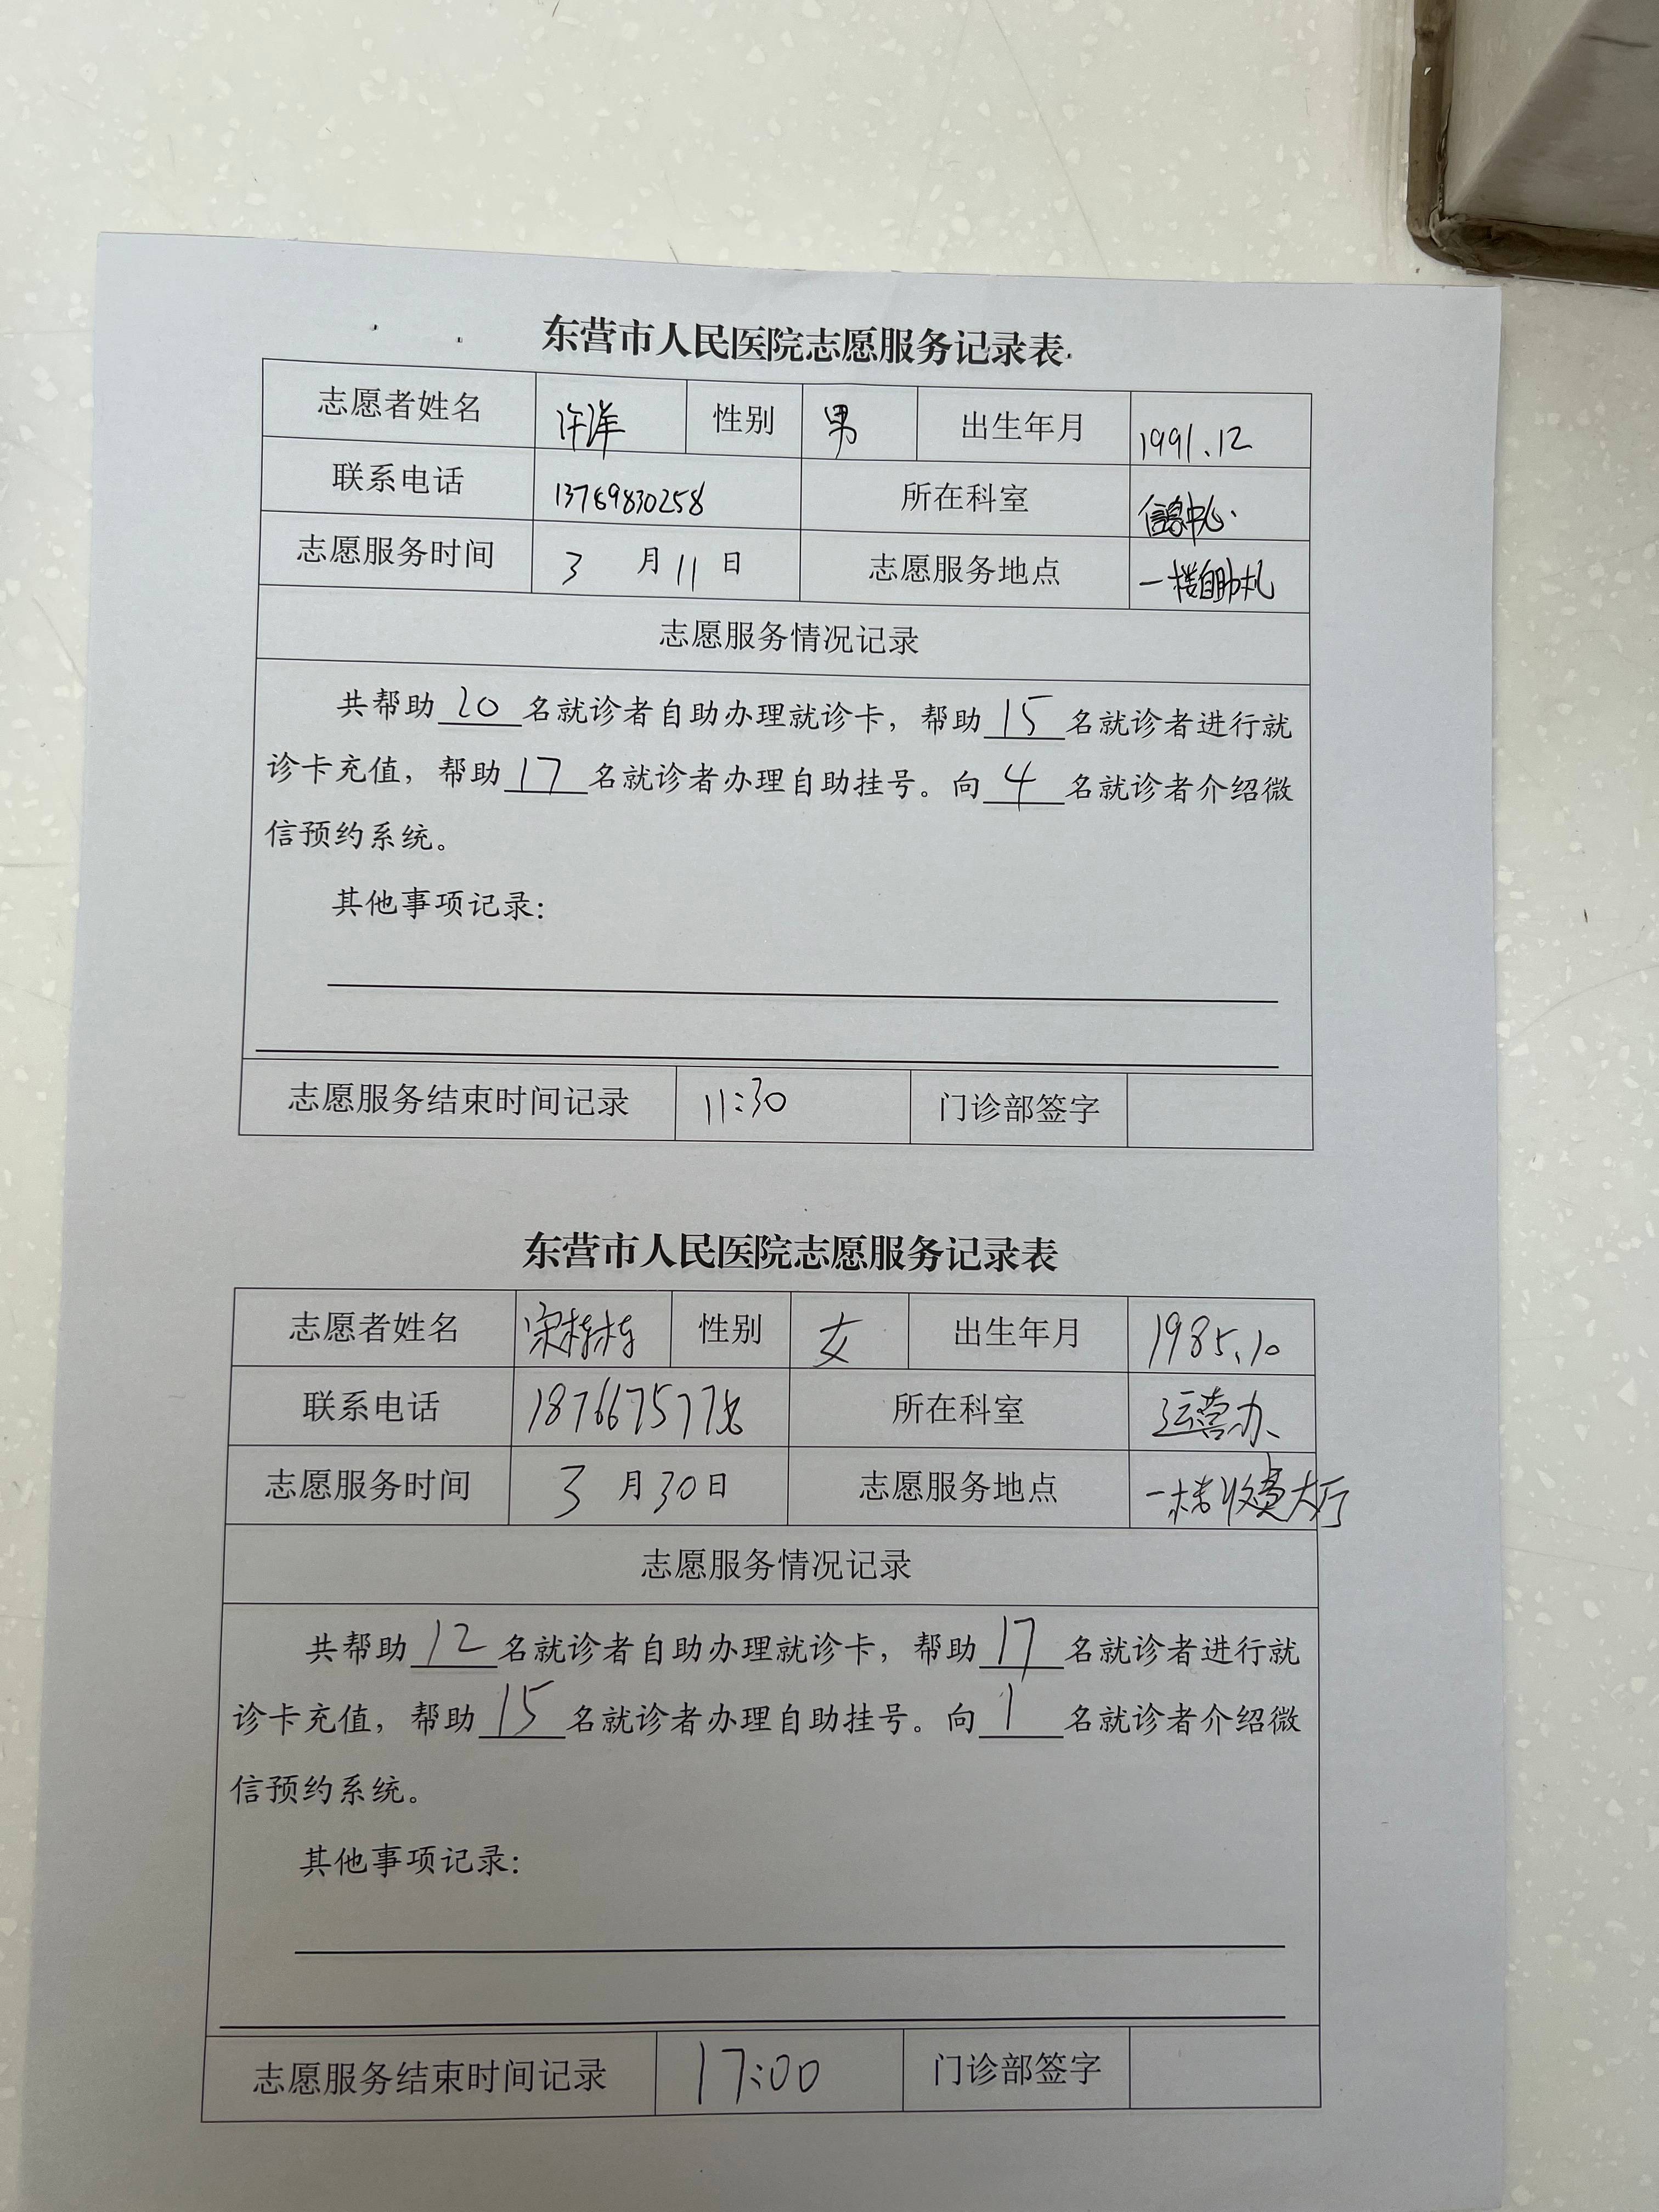 东营市人民医院志愿服务记录表
志愿者姓名 许洋 性别 男 出生年月 1991.12
联系电话 13789830258 所在科室 信息中心
志愿服务时间 3 月 11 日 志愿服务地点 一楼自助机
志愿服务情况记录
共帮助20名就诊者自助办理就诊卡，帮助15名就诊者进行就
诊卡充值，帮助17名就诊者办理自助挂号。向4名就诊者介绍微
信预约系统。
其他事项记录：
志愿服务结束时间记录 11:30 门诊部签字
东营市人民医院志愿服务记录表
志愿者姓名 性别 女 出生年月 1985.10
联系电话 所在科室 运营办
志愿服务时间 3 月 30 日 志愿服务地点 一楼收费大厅
志愿服务情况记录
共帮助12名就诊者自助办理就诊卡，帮助17名就诊者进行就
诊卡充值，帮助15名就诊者办理自助挂号。向1名就诊者介绍微
信预约系统。
其他事项记录：
志愿服务结束时间记录 17:00 门诊部签字